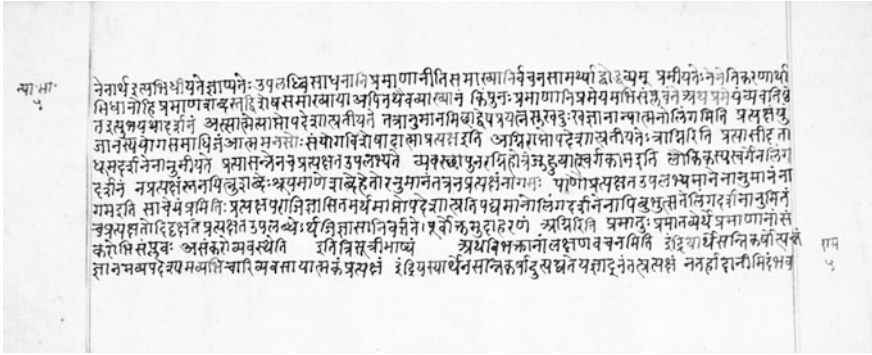 न्या॰भा॰
५
नेनार्थ इत्यभिधीयते ज्ञाप्यतेः उपलब्धिसाधनानि प्रमाणानीति समाख्यानिर्वचनसामर्थ्याद्बोद्धव्यम् प्रमीयतेःनेनेति करणार्था
भिधानोहि प्रमाणशब्दस्तद्विशेषसमाख्याया अपि तथैव व्याख्यानं किं पुनः प्रमाणानि प्रमेयमभिसंप्लवंतेअथ प्रमेयं व्यवतिष्ठं
त इत्युभयथा दर्शनं अस्त्यात्मेत्याप्तोपदेशात्प्रतीयते तत्रानुमानमिच्छाद्वेषप्रयत्नसुखदुःखज्ञानान्यात्मनो लिंगमिति प्रत्यक्षंयु
जानस्य योगसमाधिजं आत्ममनसोः संयोगविशेषादात्मा प्रत्यक्ष इति अग्निराप्तोपदेशात्प्रतीयतेःत्राग्निरिति प्रत्यासीदता
धूमदर्शनेनानुमीयते प्रत्यासन्नेन च प्रत्यक्षत उपलभ्यते व्यवस्था पुनरग्निहोत्रं जुहुयात्स्वर्गकाम इति लौकिकस्य स्वर्गे न लिंग
दर्शनं न प्रत्यक्षं स्तनयित्नुशब्देः श्रूयमाणे शब्दहेतोरनुमानं तत्र न प्रत्यक्षं नागमः पाणौ प्रत्यक्षत उपलभ्यमाने नानुमानं ना
गम इति सा चेयं प्रमितिः प्रत्यक्षपरा जिज्ञासितमर्थमाप्तोपदेशात्प्रतिपद्यमानो लिंगदर्शनेनापि बुभुत्सते लिंगदर्शनानुमितं
च प्रत्यक्षतो दिदृक्षते प्रत्यक्षत उपलब्धेःर्थे जिज्ञासा निवर्तते पूर्वोक्तमुदाहरणं अग्निरिति प्रमातुः प्रमातव्येर्थे प्रमाणानां सं
करोभिसंप्लवः असंकरो व्यवस्थेति इति त्रिसूत्रीभाष्यं अथ विभक्तानां लक्षणवचनमिति इंद्रियार्थसन्निकर्षोत्पन्नं
ज्ञानमव्यपदेश्यमव्यभिचारि व्यवसायात्मकं प्रत्यक्षं इंद्रियस्यार्थेन सन्निकर्षादुत्पद्यते यज्ज्ञानं तत्प्रत्यक्षं न तर्हीदानीमिदं भव
राम
५